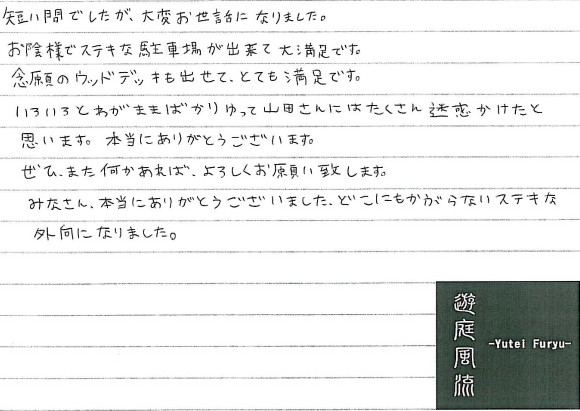 短い間でしたが、大変お世話になりました。
お陰様でステキな駐車場が出来て大満足です。
念願のウッドデッキも出せて、とても満足です。
いろいろとわがままばかりゆって山田さんにはたくさん迷惑かけたと
思います。本当にありがとうございます。
ぜひ、また何かあれば、よろしくお願い致します。
みなさん、本当にありがとうございました、どこにもかぶらないステキな
外向になりました。
遊庭風流
-Yutei Furyu-